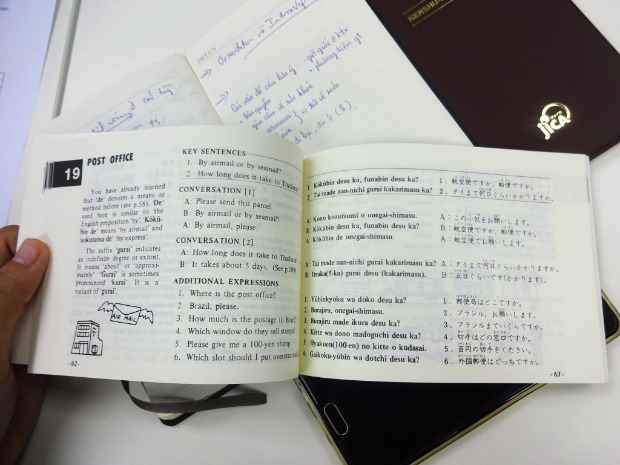 19
POST OFFICE
You have already learned
that 'de' denotes a means or
method before (see p.58). 'De'
used here is similar to the
English preposition 'by'. 'Kōkū-
bin de' means 'by airmail' and
'sokutatsu de' 'by express'.
The suffix 'gurai' indicates
an indefinite degree or extent.
It means 'about' or 'approxi-
mately'. 'Gurai' is sometimes
pronounced 'kurai'. It is a
variant of 'gurai'.
AIR MAIL
KEY SENTENCES
1. By airmail or by seamail?
2. How long does it take to Thailand?
CONVERSATION [1]
A: Please send this parcel.
B: By airmail or by seamail?
A: By airmail, please.
CONVERSATION [2]
A: How long does it take to Thailand?
B: It takes about 5 days. (See p.109)
ADDITIONAL EXPRESSIONS
1. Where is the post office?
2. Brazil, please.
3. How much is the postage to Brazil?
4. Which window do they sell stamps
5. Please give me a 100-yen stamp.
6. Which slot should I put overseas
-62-
1. Kōkūbin desu ka, funabin desu ka?
2. Tai made nan-nichi gurai kakarimasu ka?
A: Kono kozutsumi o onegai-shimasu.
B: Kōkūbin desu ka, funabin desu ka?
A: Kōkūbin de onegai-shimasu.
A: Tai made nan-nichi gurai kakarimasu ka?
B: Itsuka(5-ka) gurai desu (kakarimasu).
1. Yūbinkyoku wa doko desu ka?
2. Burajiru, onegai-shimasu.
3. Burajiru made ikura desu ka?
4. Kitte wa dono madoguchi desu ka?
5. Hyakuen(100-en) no kitte o kudasai.
6. Gaikoku-yūbin wa dotchi desu ka?
1. 航空便ですか、船便ですか。
2. タイまで何日ぐらいかかりますか。
A: この小包をお願いします。
B: 航空便ですか、船便ですか。
A: 航空便でお願いします。
A: タイまで何日ぐらいかかりますか。
B: 五日ぐらいです(かかります)。
1. 郵便局はどこですか。
2. ブラジル、お願いします。
3. ブラジルまでいくらですか。
4. 切手はどの窓口ですか。
5. 百円の切手をください。
6. 外国郵便はどっちですか。
-63-
Orientation
KENSHU-
JICA